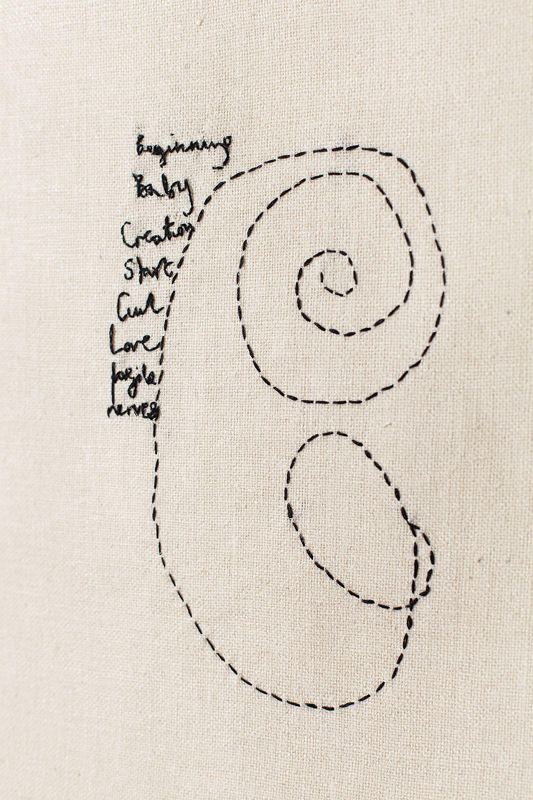 Beginning
Baby
Creation
Start
Curl
Love
fragile
nerves